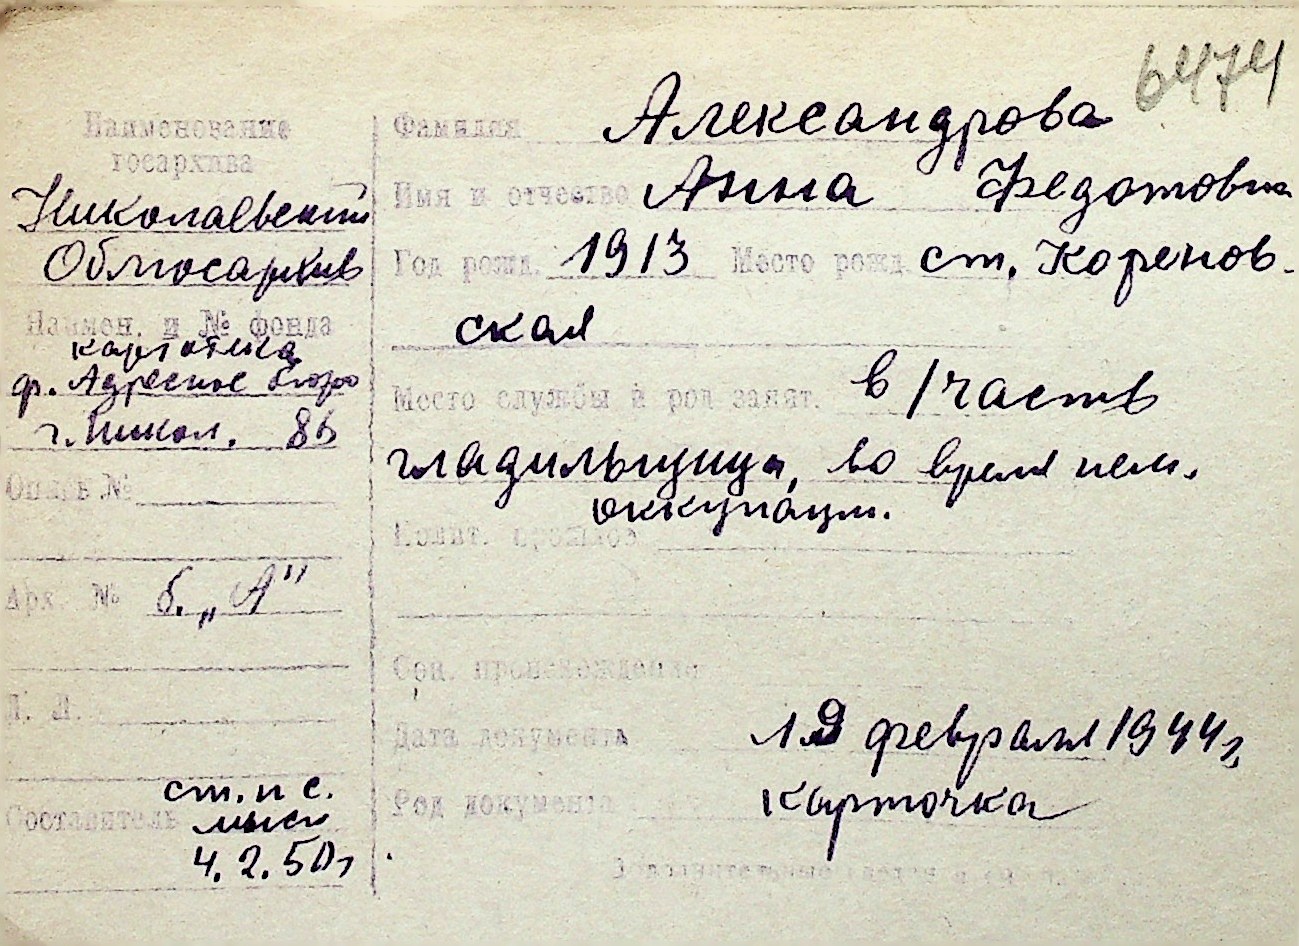 6474
Наименование
госархива
Николаевский
Облгосархив
Наимен. и № фонда
картотека
ф. Адресное бюро
г. Никол. 86
Опись №
Арх. № б. „А"
Л. Л.
ст. н с.
Составитель
4.2.50г
Фамилия Александрова
Имя и отчество Анна Федотовна
Год рожд. 1913 Место рожд. ст. Коренов-
ская
Место службы и род занят. в/часть
гладильщица, во время нем.
оккупации.
Полит. прошлое
Соц. происхождение
Дата документа 19 февраля 1944 г,
Род документа карточка
Дополнительные сведения